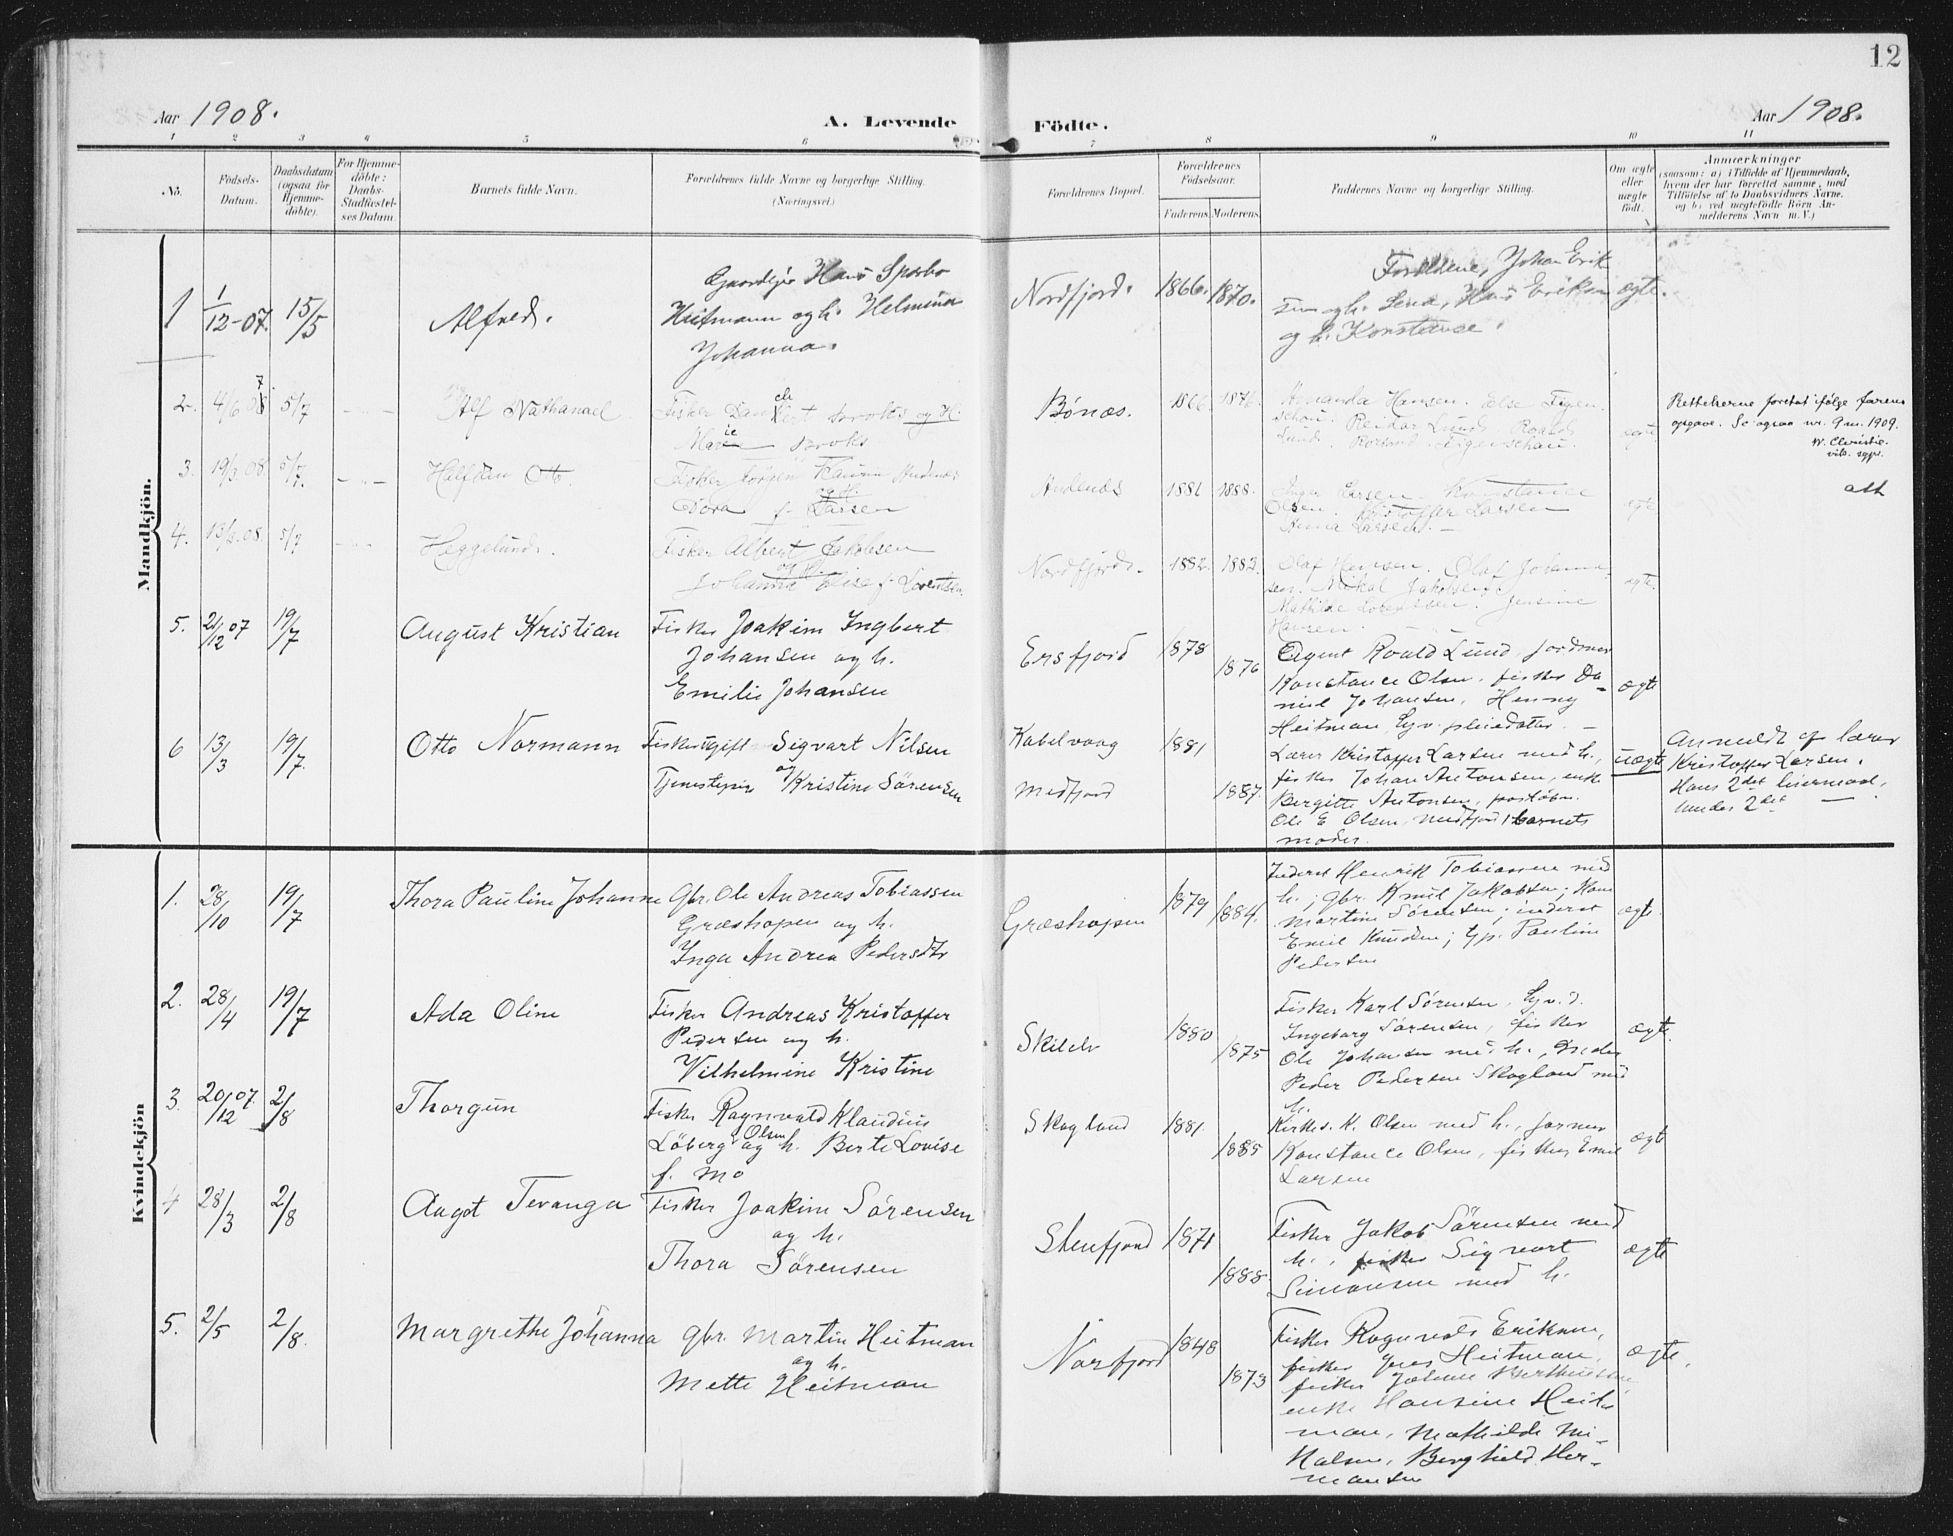 12
Aar 1908.
A. Levende
Födte.
Aar 1908.
1 2 3 4 5 6 7 8 9 10 11
No.
Födsels-
Datum.
Daabsdatum
(ogsaa for
Hjemme-
döbte).
For Hjemme-
döbte:
Daabs-
Stadfæstel-
ses Datum.
Barnets fulde Navn.
Forældrenes fulde Navne og borgerlige Stilling.
(Næringsvei.)
Forældrenes Bopæl.
Forældrenes
Födselsaar.
Faderens.
Moderens.
Faddernes Navne og borgerlige Stilling.
Om ægte
eller
uægte
födt.
Anmærkninger
(saasom: a) i Tilfælde af Hjemmedaab,
hvem der har forrettet samme, med
Tilföielse af to Daabsvidners Navne,
og b) ved uægtefödte Börn An-
melderens Navn m. V.)
Mandkjön.
1 1/12-07. 15/5
Alfred.
Gaardejer Hans Sparbo
Heitmann og h. Helmina
Johanna.
Nordfjord. 1866. 1870.
Forældrene, Johan Erik
sen og h. Lena, Hans Eriksen
og h. Konstance.
ægte.
2. 5/7
Alf Nathanael
Fisker
Bönæs. 1866. 1876.
Amanda Hansen. Else Eigen-
schou. Reidar Lund. Roald
Lund.
ægte
Rettelserne foretat ifölge farens
opgave. Se ogsaa nr. 9 m. 1909.
W. Christie.
vik. sgpr.
3. 19/3.08. 5/7.
Halfdan Otto.
Fisker
Dora f. Larsen
Andenæs 1881 1888.
Inger Larsen. Konstance
Olsen. Kristoffer Larsen
Anna Larsen. —
ægte
att
4. 13/3.08. 5/7
Heggelund.
Fisker Albert Jakobsen
og h.
Johanna Lovise f. Lorentsen.
Nordfjord. 1882. 1882.
Olaf Hansen. Olaf Johanne-
sen. Mikal Jakobsen
Mathilde Lorentsen. Jensine
Hansen.
ægte.
5. 21/12 07 19/7
August Kristian
Fisker Joakim Ingbert
Johansen og h.
Emilie Johansen
Ersfjord 1878 1876
Agent Roald Lund, jordmor
Konstance Olsen, fisker Da-
niel Johansen, Henny
Heitman,
ægte
6 13/3 19/7.
Otto Normann
Fisker ugift Sigvart Nilsen
og
Tjenestepige Kristine Sörensen
Kabelvaag 1881
Medfjord 1887.
Lærer Kristoffer Larsen med h.,
fisker Johan Antonsen, enke
Bergitte Antonsen, postaabn.
Ole E Olsen, Medfjord, barnets
moder.
uægte
Anmeldt af lærer
Kristoffer Larsen.
Hans 2det leiermaal,
hendes 2det —
Kvindekjön
1. 28/10 19/7
Thora Pauline Johanne
Gbr. Ole Andreas Tobiassen
Græshopen og h.
Inga Andrea Pedersdtr
Græshopen 1879 1884.
Inderst Henrik Tobiassen med
h.; gbr. Emil Jakobsen; Kone
Martine Sörensen; inderst
Emil Knudsen; tjp. Pauline
Pedersen
ægte.
2. 28/4 19/7
Ada Oline
Fisker Andreas Kristoffer
Pedersen og h.
Vilhelmine Kristine
Skilelv 1880 1875
Fisker Karl Sörensen,
Ingeborg Sörensen, fisker
Ole Johansen med h.,
Peder Pedersen Skogland med
h.
ægte.
3. 20/12 07. 2/8
Thorgun
Fisker Ragnvald Klaudius
Olsen
Löberg og h. Berte Lovise
f. Mo
Skogland 1881. 1885
Kirkes. K. Olsen med h., jormor
Konstance Olsen, fisker Emil
Larsen
ægte
4 28/3 2/8
Aagot Tevanga
Fisker Joakim Sörensen
og h.
Thora Sörensen
Stenfjord 1871 1888.
Fisker Jakob Sörensen med
h., fisker Sigvart
Simonsen med h.
ægte
5. 2/5 2/8.
Margrethe Johanna
Gbr. Martin Heitman
og h.
Mette Heitman
Norfjord 1848 1873
Fisker Ragnvald Eriksen,
fisker Jens Heitman,
fisker
enke Hansine Heit-
man, Mathilde Mi-
kalsen, Berghild Her-
mansen
ægte.